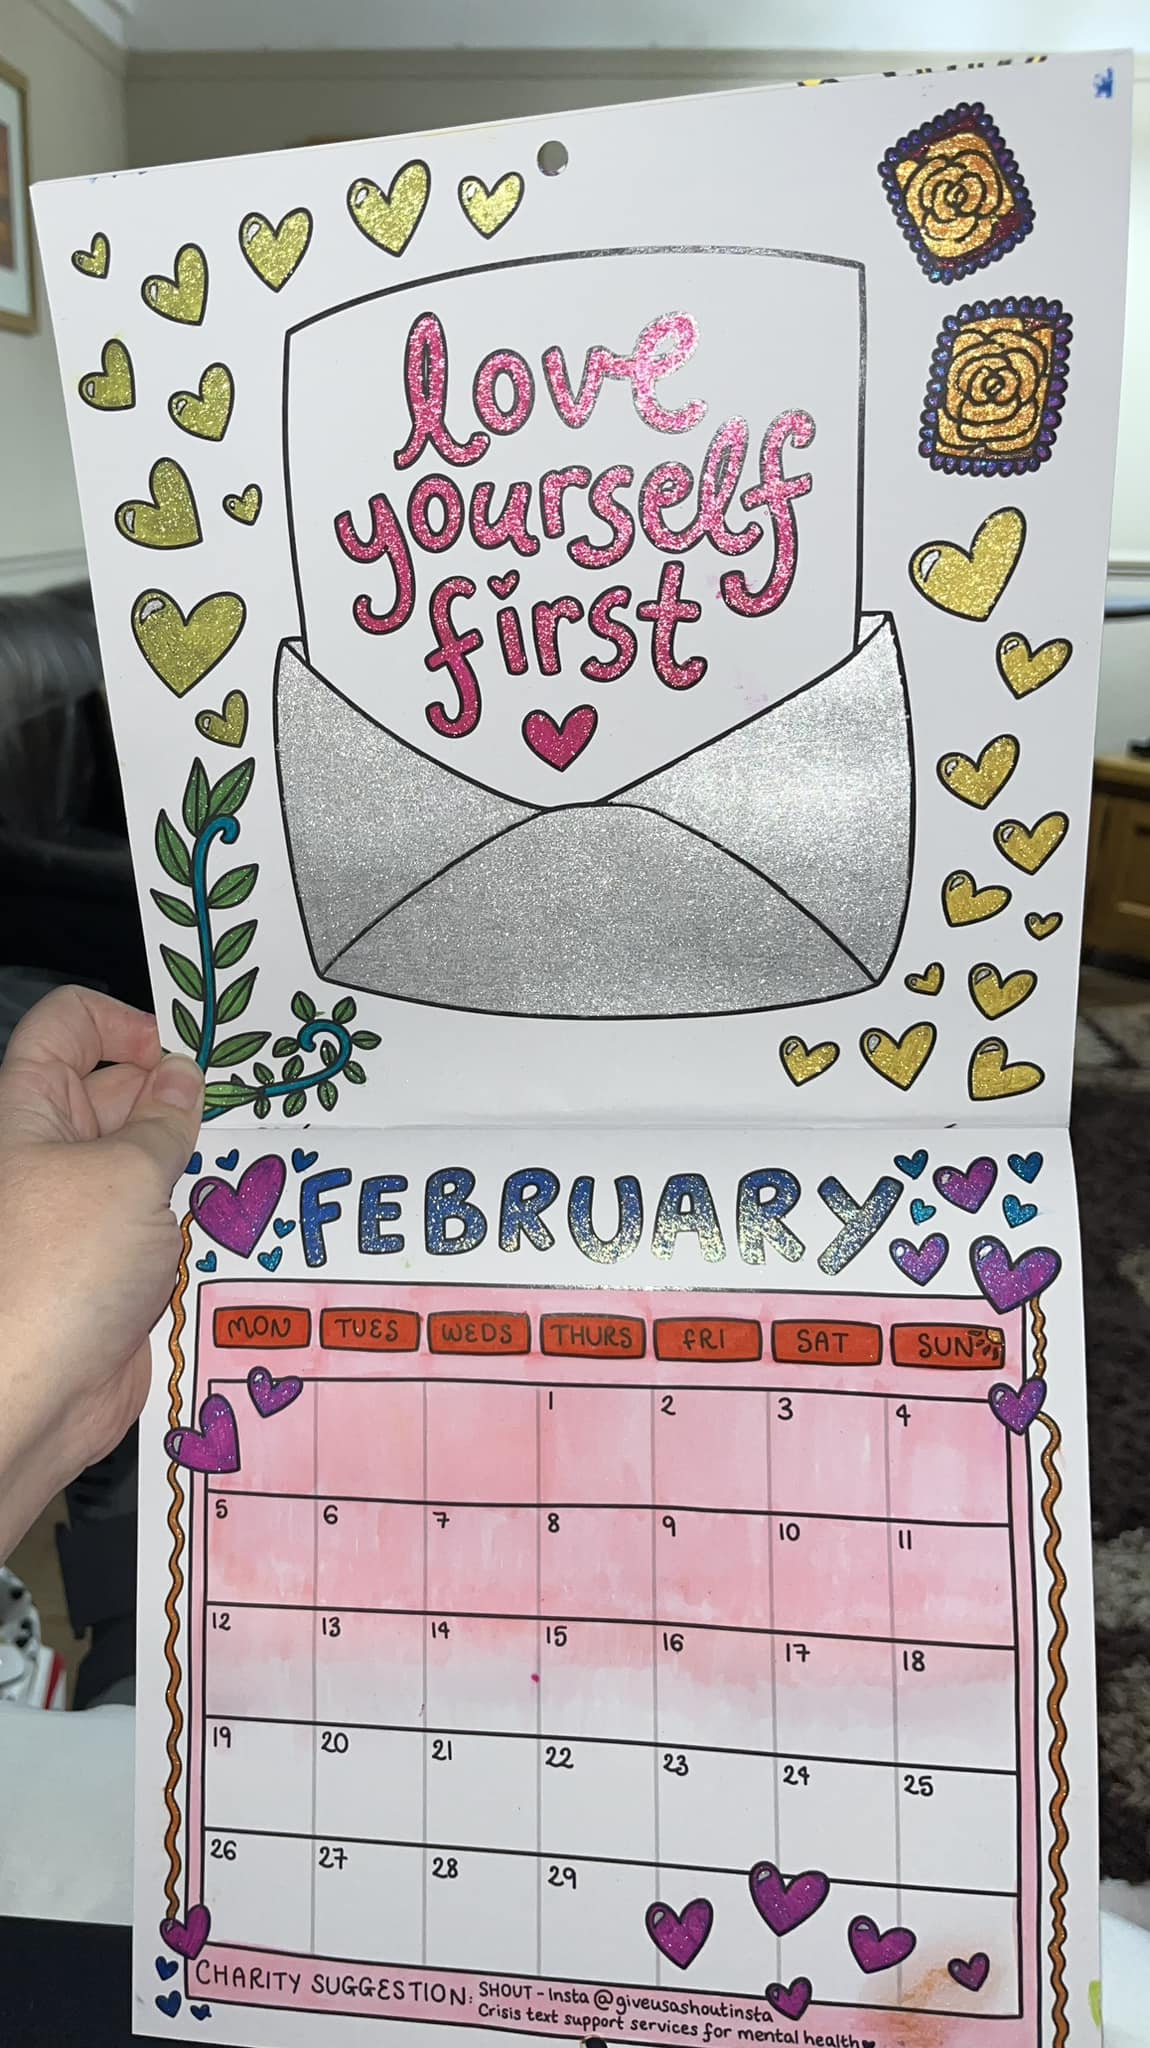 love
yourself
first
FEBRUARY
MON TUES WEDS THURS FRI SAT SUN
1 2 3 4
5 6 7 8 9 10 11
12 13 14 15 16 17 18
19 20 21 22 23 24 25
26 27 28 29
CHARITY SUGGESTION: SHOUT - Insta @giveusashoutinsta
Crisis text support services for mental health